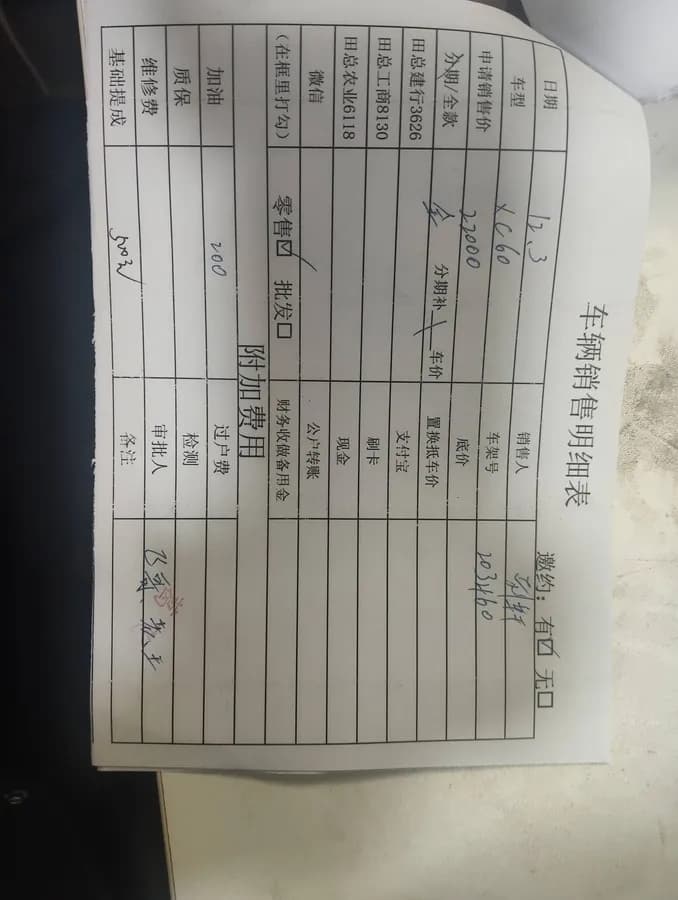 车辆销售明细表
邀约：有☑ 无□
日期 12.3 销售人
车型 XC60 车架号 203460
申请销售价 22000 底价
分期/全款 全 分期补 车价 置换抵车价
田总建行3626 支付宝
田总工商8130 刷卡
田总农业6118 现金
微信 公户转账
（在框里打勾） 零售☑ 批发□ 财务收做备用金
附加费用
加油 200 过户费
质保 检测
维修费 审批人
基础提成 500元 备注